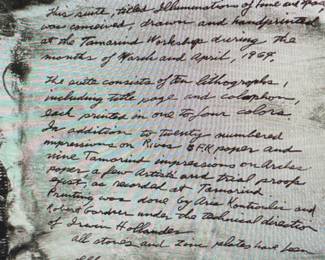 This suite titled Illuminations of Time and Space
was conceived, drawn and handprinted
at the Tamarind Workshop during the
months of March and April, 1969.
The suite consists of ten lithographs,
including title page and colophon,
each printed in one to four colors.
In addition to twenty numbered
impressions on Rives BFK paper and
nine Tamarind impressions on Arches
paper a few Artists and trial proofs
exist as recorded at Tamarind
Printing was done by
Robert Gardner under the technical direction
of Irwin Hollander
all stones and zinc plates have been